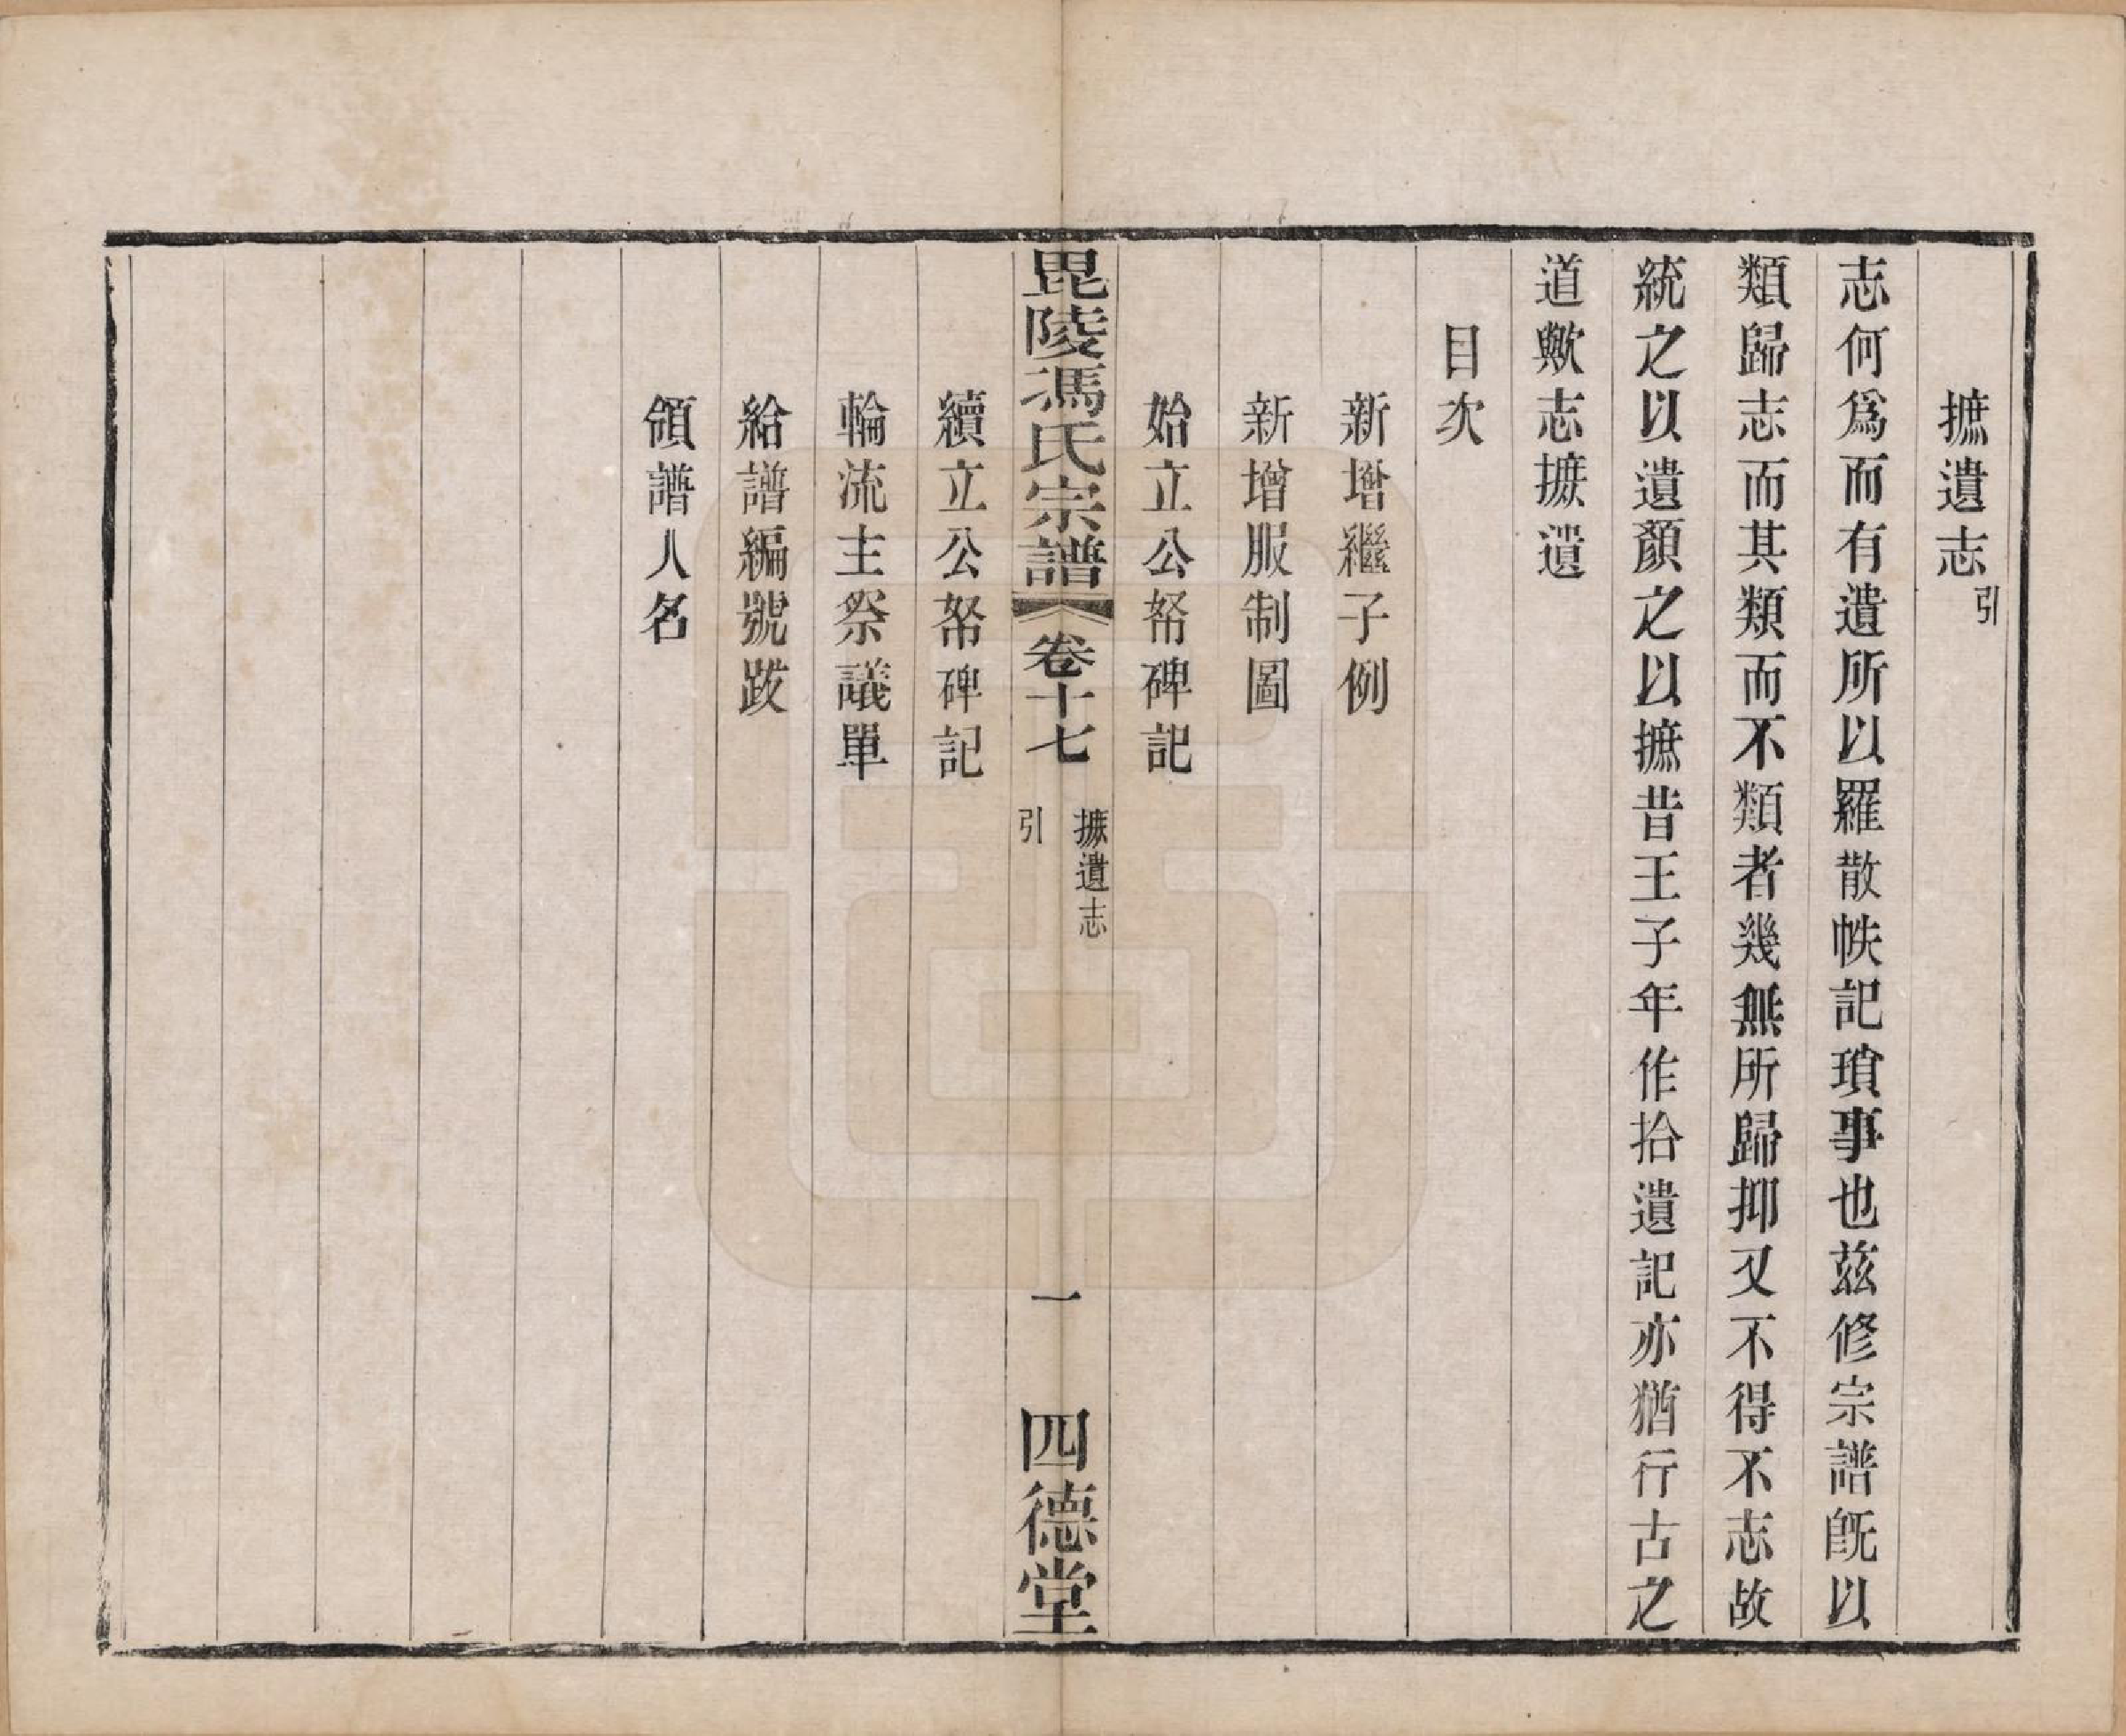 摭遺志引
志何爲而有遺所以羅散帙記瑣事也茲修宗譜旣以
類歸志而其類而不類者幾無所歸抑又不得不志故
統之以遺顏之以摭昔王子年作拾遺記亦猶行古之
道歟志摭遺
目次
新增繼子例
新增服制圖
始立公帑碑記
毘陵馮氏宗譜
卷十七
摭遺志
引
一
四德堂
續立公帑碑記
輪流主祭議單
給譜編號跋
領譜人名